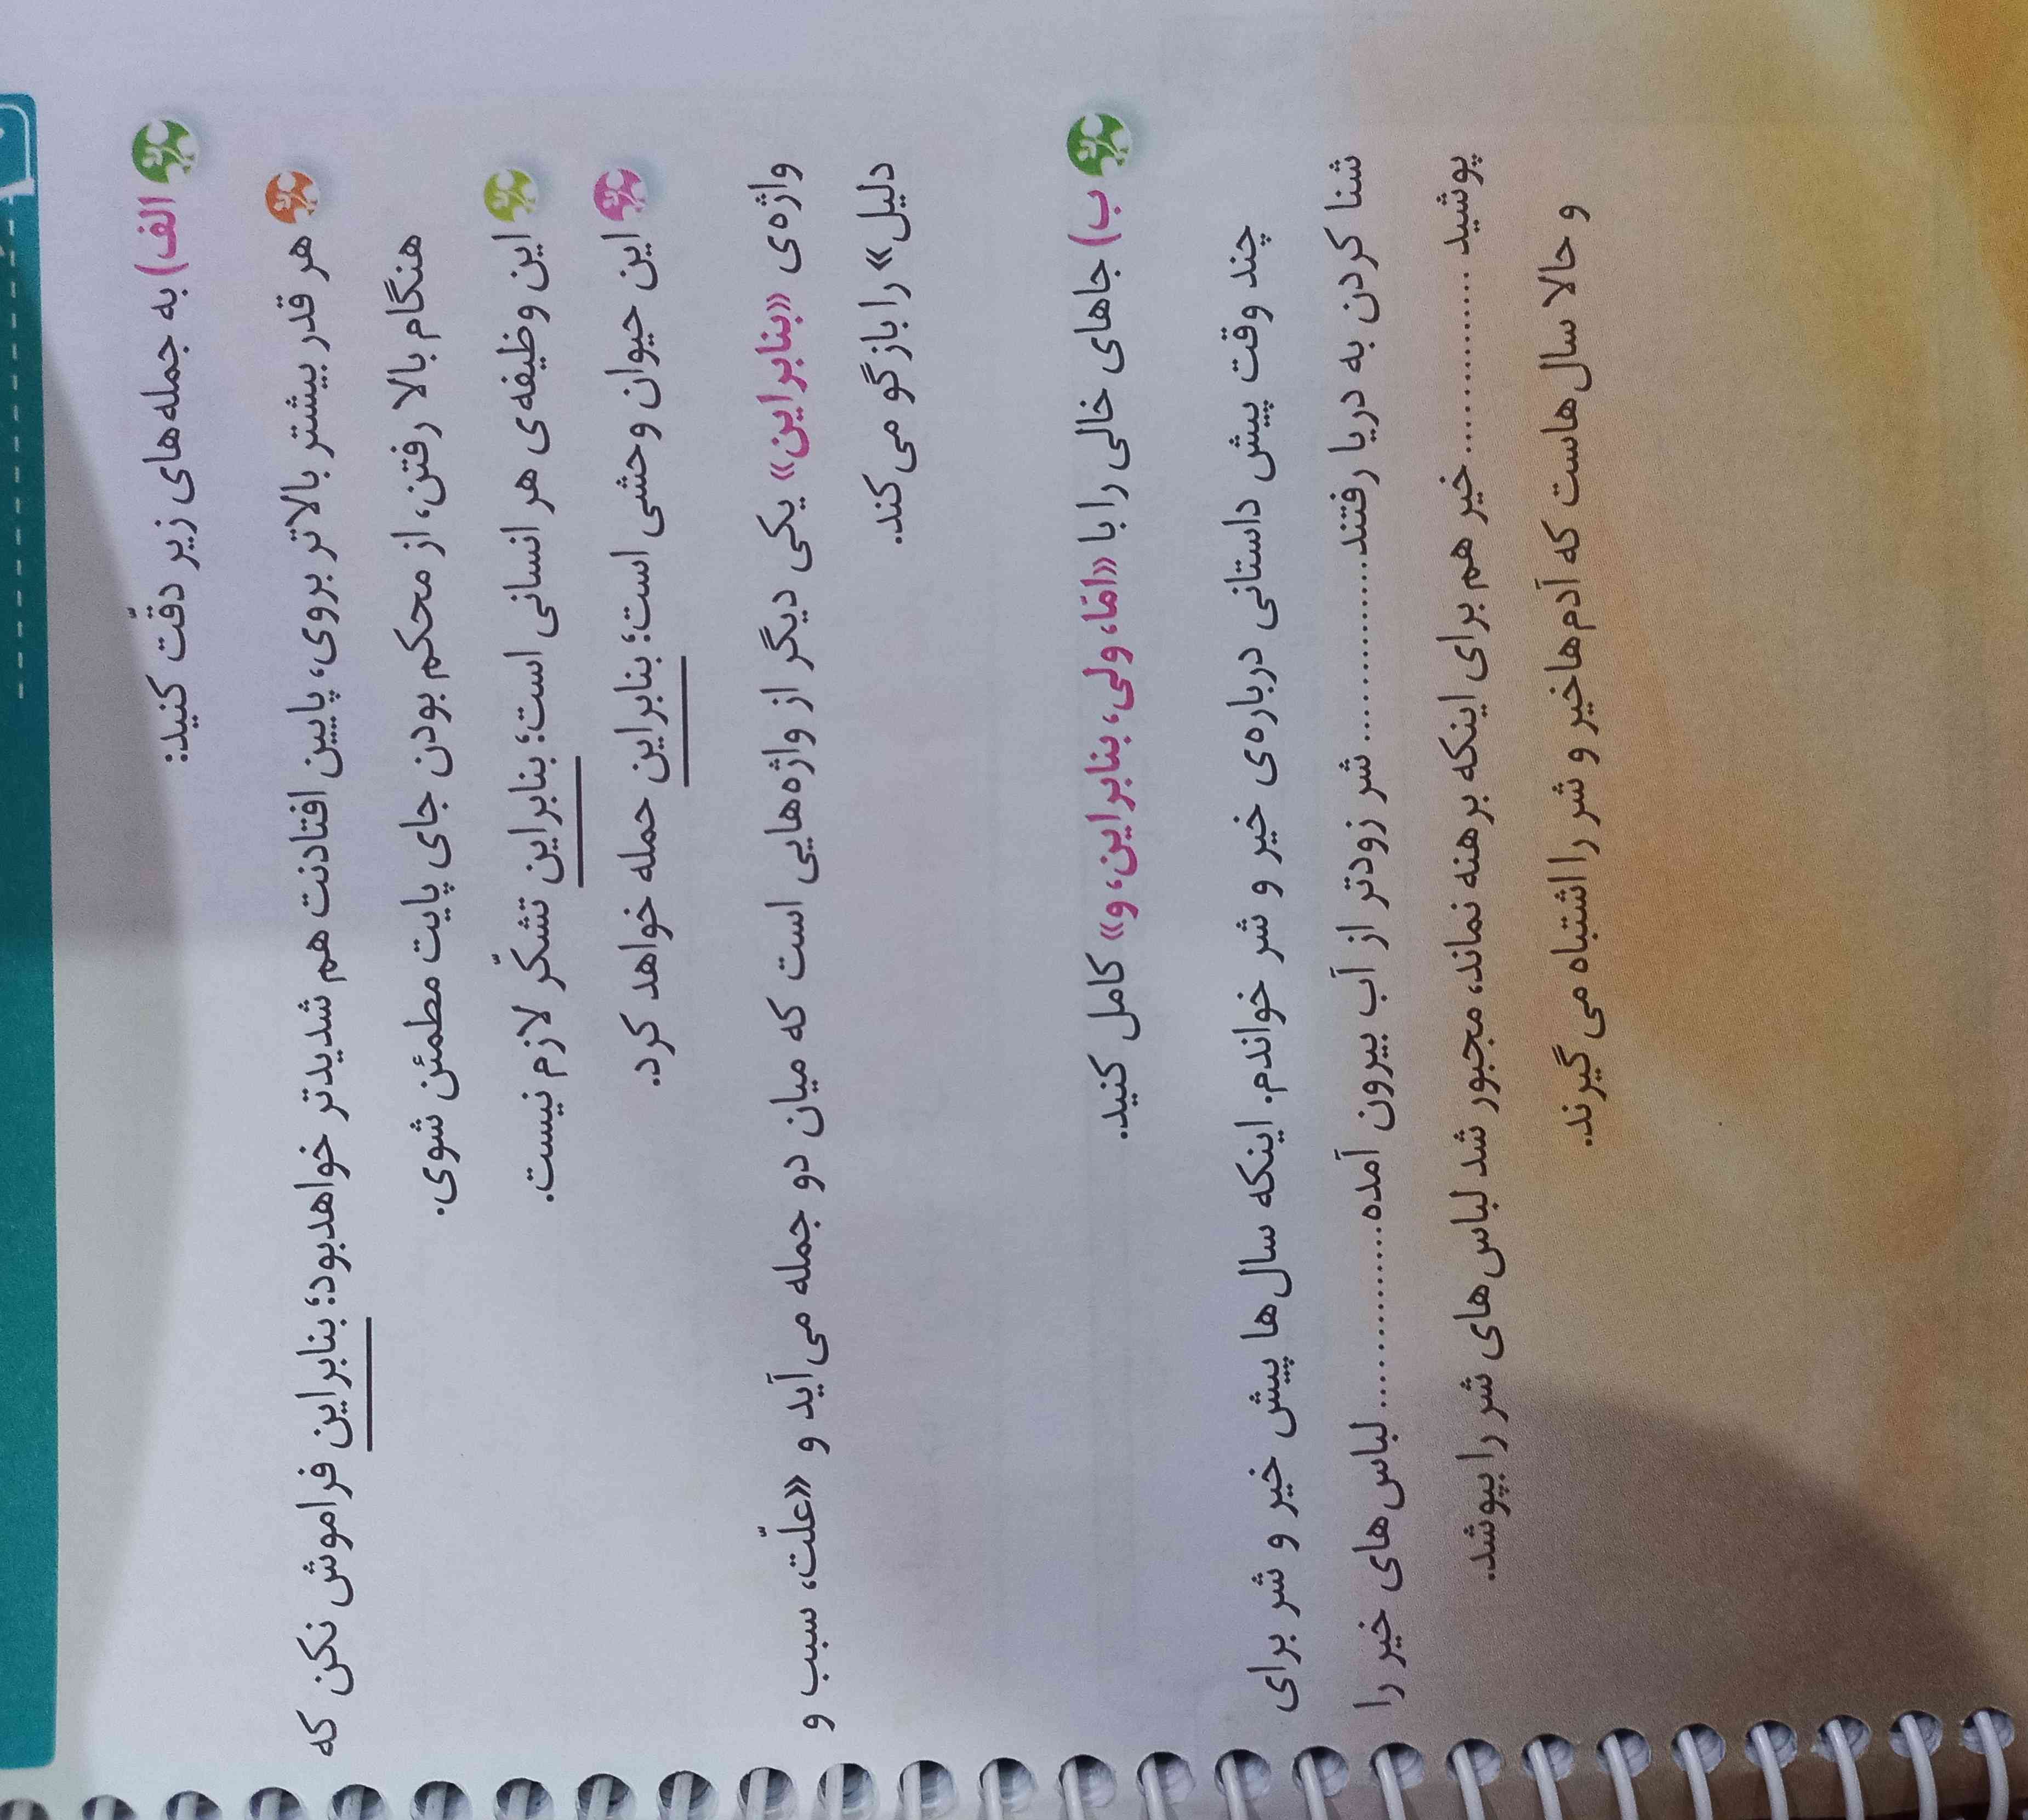 الف) به جمله‌های زیر دقّت کنید:
هر قدر بیشتر بالاتر بروی، پایین افتادنت هم شدیدتر خواهدبود؛ بنابراین فراموش نکن که
هنگام بالا رفتن، از محکم بودن جای پایت مطمئن شوی.
این وظیفه‌ی هر انسانی است؛ بنابراین تشکّر لازم نیست.
این حیوان وحشی است؛ بنابراین حمله خواهد کرد.
واژه‌ی «بنابراین» یکی دیگر از واژه‌هایی است که میان دو جمله می‌آید و «علّت، سبب و
دلیل» را بازگو می‌کند.
ب) جاهای خالی را با «امّا، ولی، بنابراین، و» کامل کنید.
چند وقت پیش داستانی درباره‌ی خیر و شر خواندم. اینکه سال‌ها پیش خیر و شر برای
شنا کردن به دریا رفتند................ شر زودتر از آب بیرون آمده................ لباس‌های خیر را
پوشید ................ خیر هم برای اینکه برهنه نماند، مجبور شد لباس‌های شر را بپوشد.
و حالا سال‌هاست که آدم‌ها خیر و شر را اشتباه می‌گیرند.